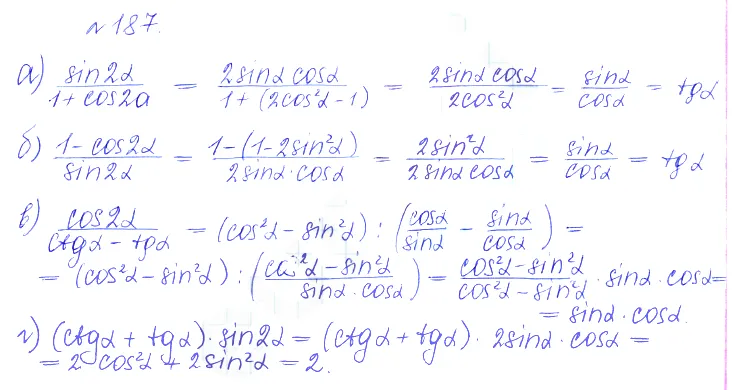 №187.
а) sin2α/(1 + cos2α) = 2sinα cosα/(1 + (2cos²α - 1)) = 2sinα cosα/2cos²α = sinα/cosα = tgα
б) (1 - cos2α)/sin2α = (1 - (1 - 2sin²α))/(2sinα·cosα) = 2sin²α/(2sinα cosα) = sinα/cosα = tgα
в) cos2α/(ctgα - tgα) = (cos²α - sin²α) : (cosα/sinα - sinα/cosα) =
= (cos²α - sin²α) : ((cos²α - sin²α)/(sinα·cosα)) = (cos²α - sin²α)/(cos²α - sin²α) · sinα·cosα =
= sinα·cosα.
г) (ctgα + tgα)·sin2α = (ctgα + tgα)·2sinα·cosα =
= 2 cos²α + 2sin²α = 2.